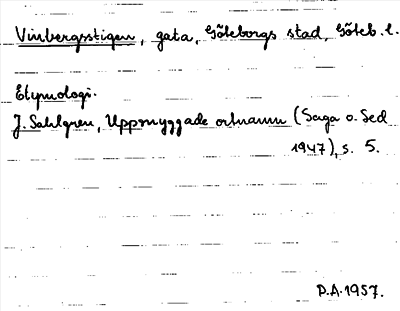 Vinbergsstigen, gata, Göteborgs stad, Göteb. l.
Etymologi.
J. Sahlgren, Uppsnyggade ortnamn (Saga o. Sed
1947), s. 5.
P.A. 1957.